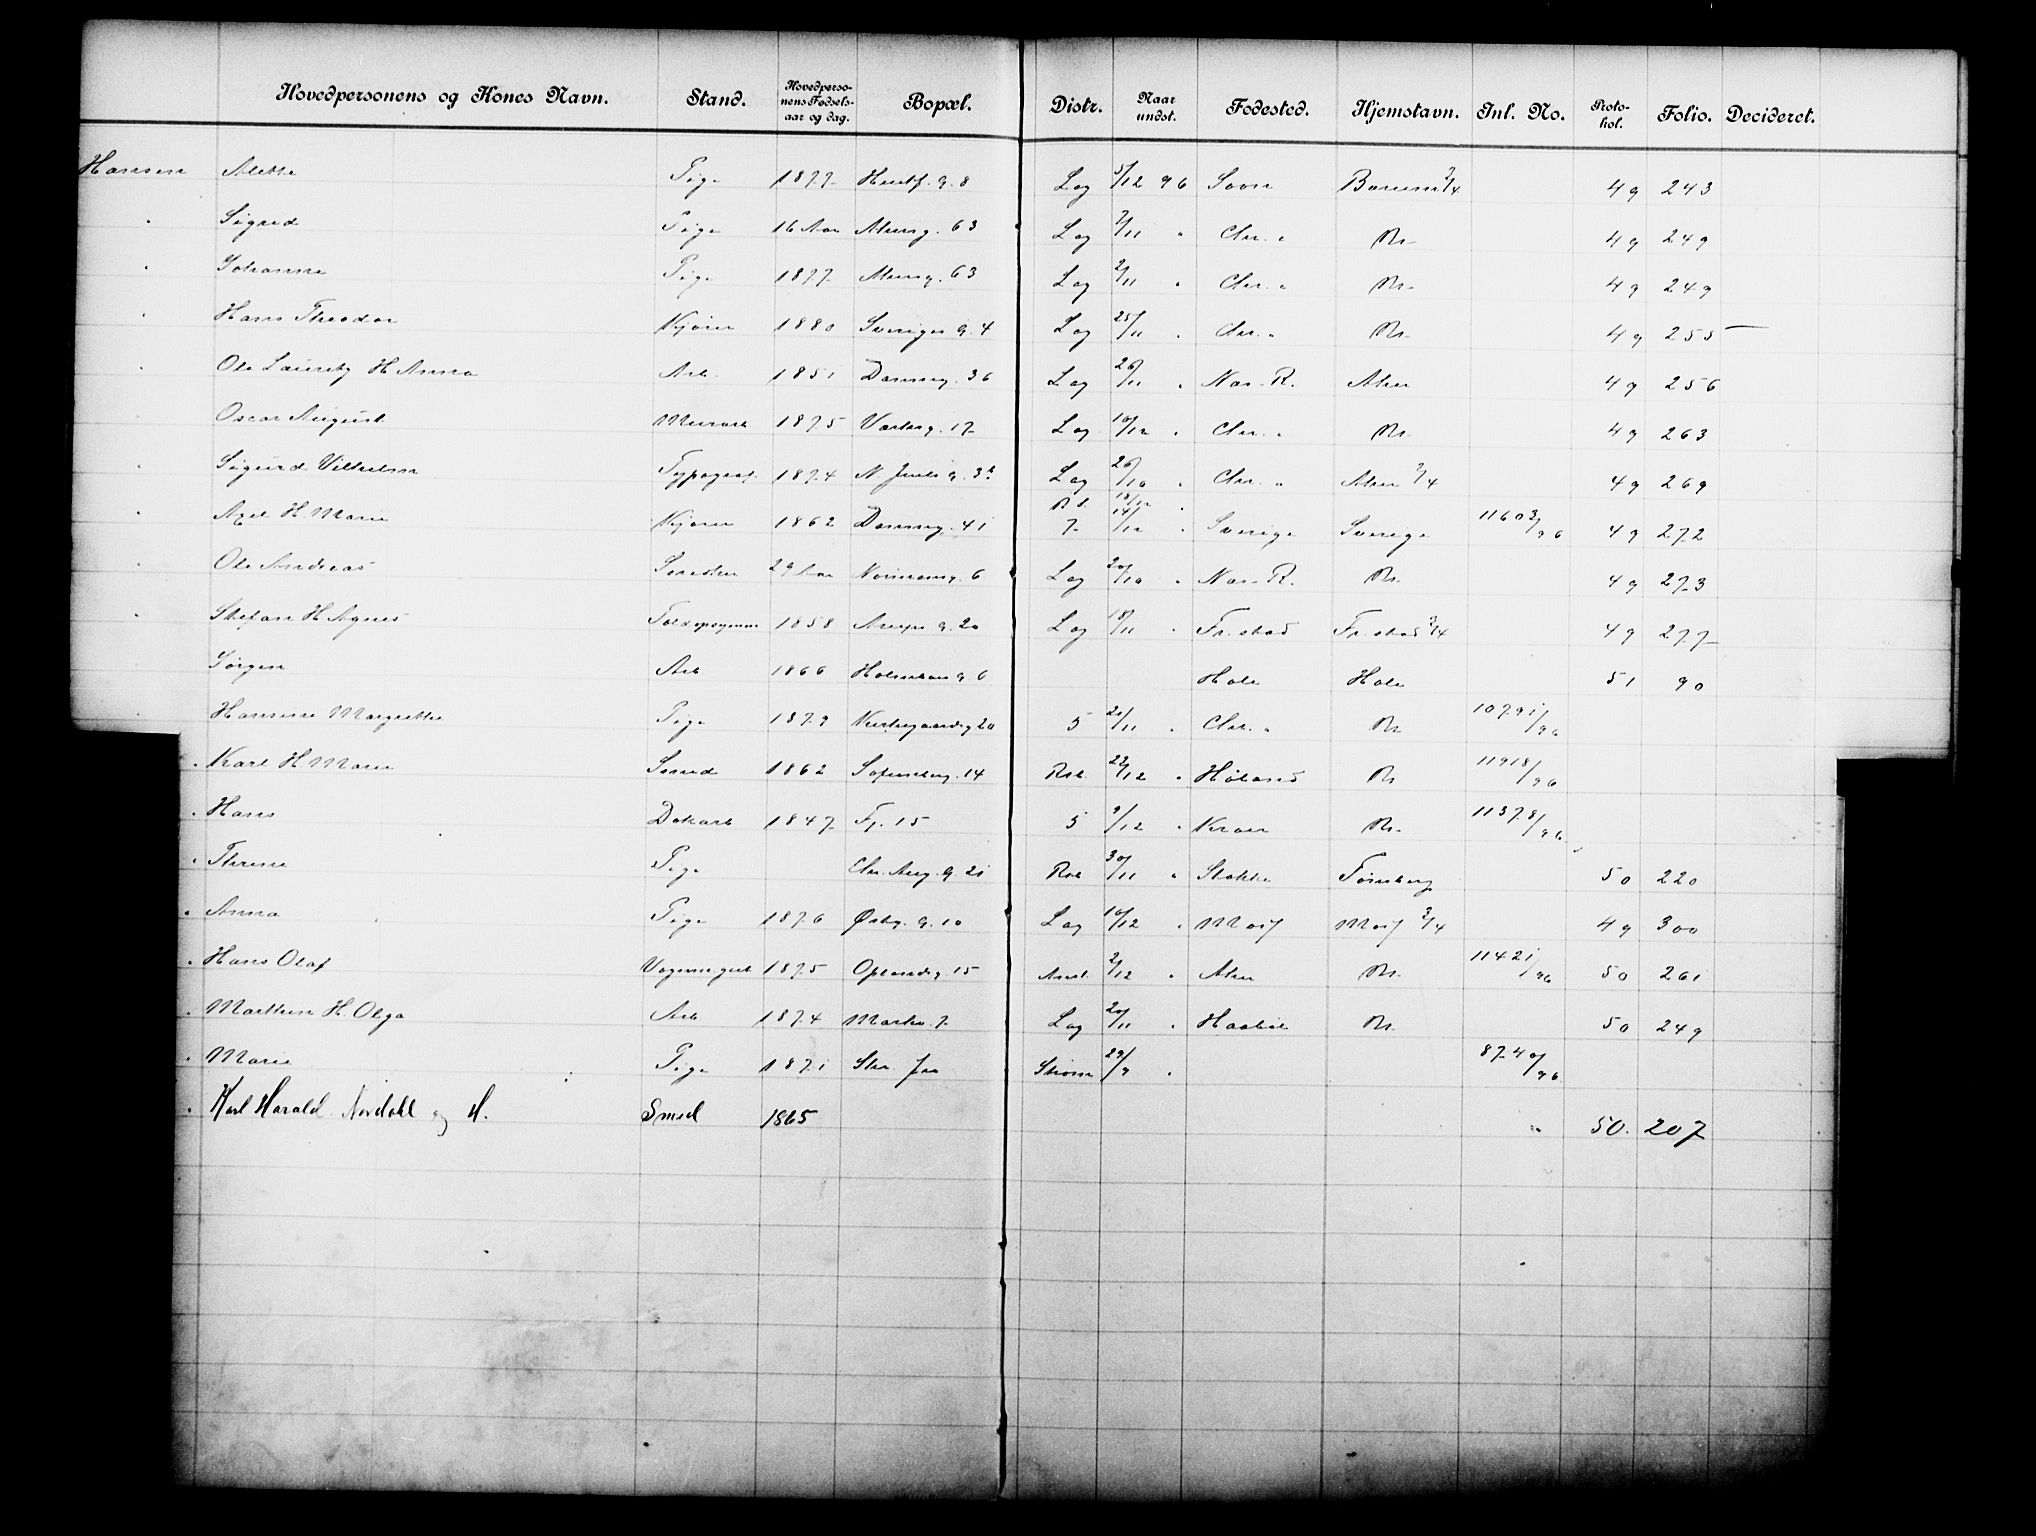 Hovedpersonens og Kones Navn. Stand. Hovedpersonens Fødselsaar og dag. Bopæl. Distr. Naar undst. Fødested. Hjemstavn. Inl. No. Protokol. Folio. Decideret.
Hansen Alette Pige 1877 9.8 Lag 5/12 96 Soon 2/4 49 243
" Sigrid Pige 16 Aar 63 Lag 7/11 " Chr.a 49 249
" Johanne Pige 1877 63 Lag 2/11 " Chr.a 49 249
" Hans Theodor Kjører 1880 Sveriges g. 4 Lag 25/11 " Chr.a 49 255 —
" Ole Lauritz H Anna Arb. 1851 Dannevg. 36 Lag 26/11 " Nas-R. Aker 49 256
Oscar August Murarb 1875 17 Lag 10/12 " Chr.a 49 263
" Sigurd Vilhelm Typograf. 1874 N. Juels g. Lag 26/10 " Chr.a Aker 2/4 49 269
" Axel H. Marie Kjører 1862 Dannevg. 41 7 14/12 " Sverige Sverige 11603/96 49 272
" Ole Andreas 29 Aar Normansg. 6 Lag 20/10 " Nas-R. 49 273
" Stefan H Agnes Toldopsynsm 1858 Arups g. 20 Lag 18/11 " Fr.stad Fr.stad 2/4 49 277
Jørgen Arb 1866 Holmboes g 6 Hole Hole 51 90
Hansine Margrethe Pige 1879 Kirkegaardsg 20 5 21/11 " Chr.a 10791/96
" Karl H Marie Smed 1862 Sofienbg. 14 22/12 " Høland 11918/96
" Hans 1847 Fj. 15 5 9/12 " Kroer 11378/96
" Therese Pige Chr. Aug. g. 21 30/11 " Stokke Tønsberg 50 220
" Anna Pige 1876 Østg. g. 10 Lag 10/12 " Moss Moss 2/4 49 300
" Hans Olaf Vognmgut 1875 Oplandsg. 15 2/12 " Aker 11421/96 50 261
" Mathias H. Olga Arb 1874 Markv. 7 Lag 20/11 " Haabøl 50 249
" Marie Pige 1871 Strøm 29/9 " 8740/96
" Karl Harald Nordahl og H. Smed 1865 " 50. 207